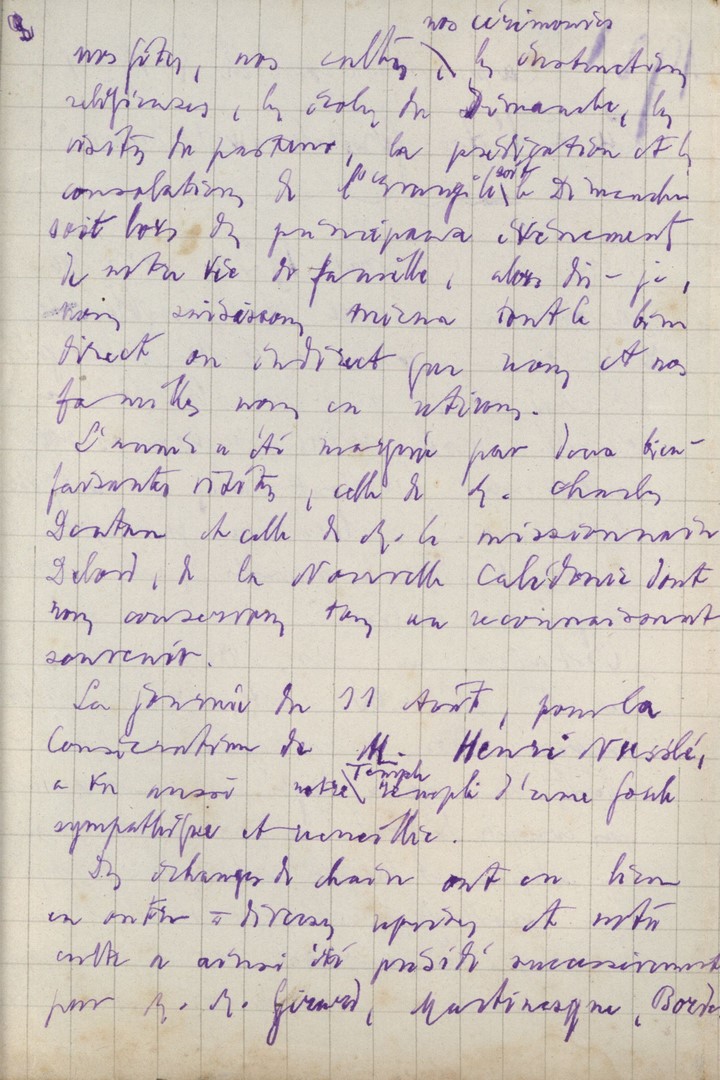 nos cérimonies
nos fêtes, nos cultes, les instructions
religieuses, les écoles du Dimanche, les
visites du pasteur, la prédication et les
consolations de l'Evangile soit le Dimanche
soit lors des principaux événement
de notre vie de famille, alors dis-je,
saisissons mieux tout le bien
direct ou indirect que nous et nos
familles nous en retirons.
L'année a été marquée par deux bien-
faisantes visites, celle de M. Charles
et celle de M. le missionnaire
Delord, de la Nouvelle Calédonie dont
nous conservons tous un reconnaissant
souvenir.
La journée du 11 Août, pour la
Consécration de M. Henri Nusslé,
Temple
a vu aussi notre rempli d'une foule
sympathique et recueillie.
Des échanges de chaire ont eu lieu
en outre à diverses reprises et notre
culte a ainsi été présidé successivement
par M. M. Girard, Martinesque,